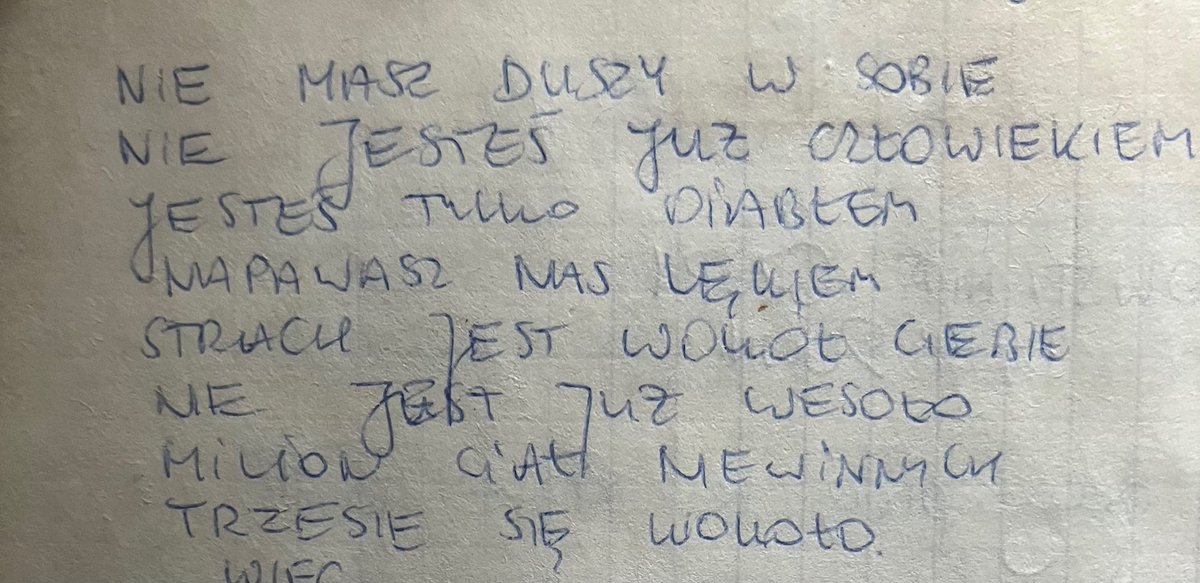 NIE MASZ DUSZY W SOBIE
NIE JESTEŚ JUŻ CZŁOWIEKIEM
JESTEŚ TYLKO DIABŁEM
NAPAWASZ NAS LĘKIEM
STRACH JEST WOKÓŁ CIEBIE
NIE JEST JUŻ WESOŁO
MILION CIAŁ NIEWINNYCH
TRZESIE SIĘ WOKOŁO.
WIĘC